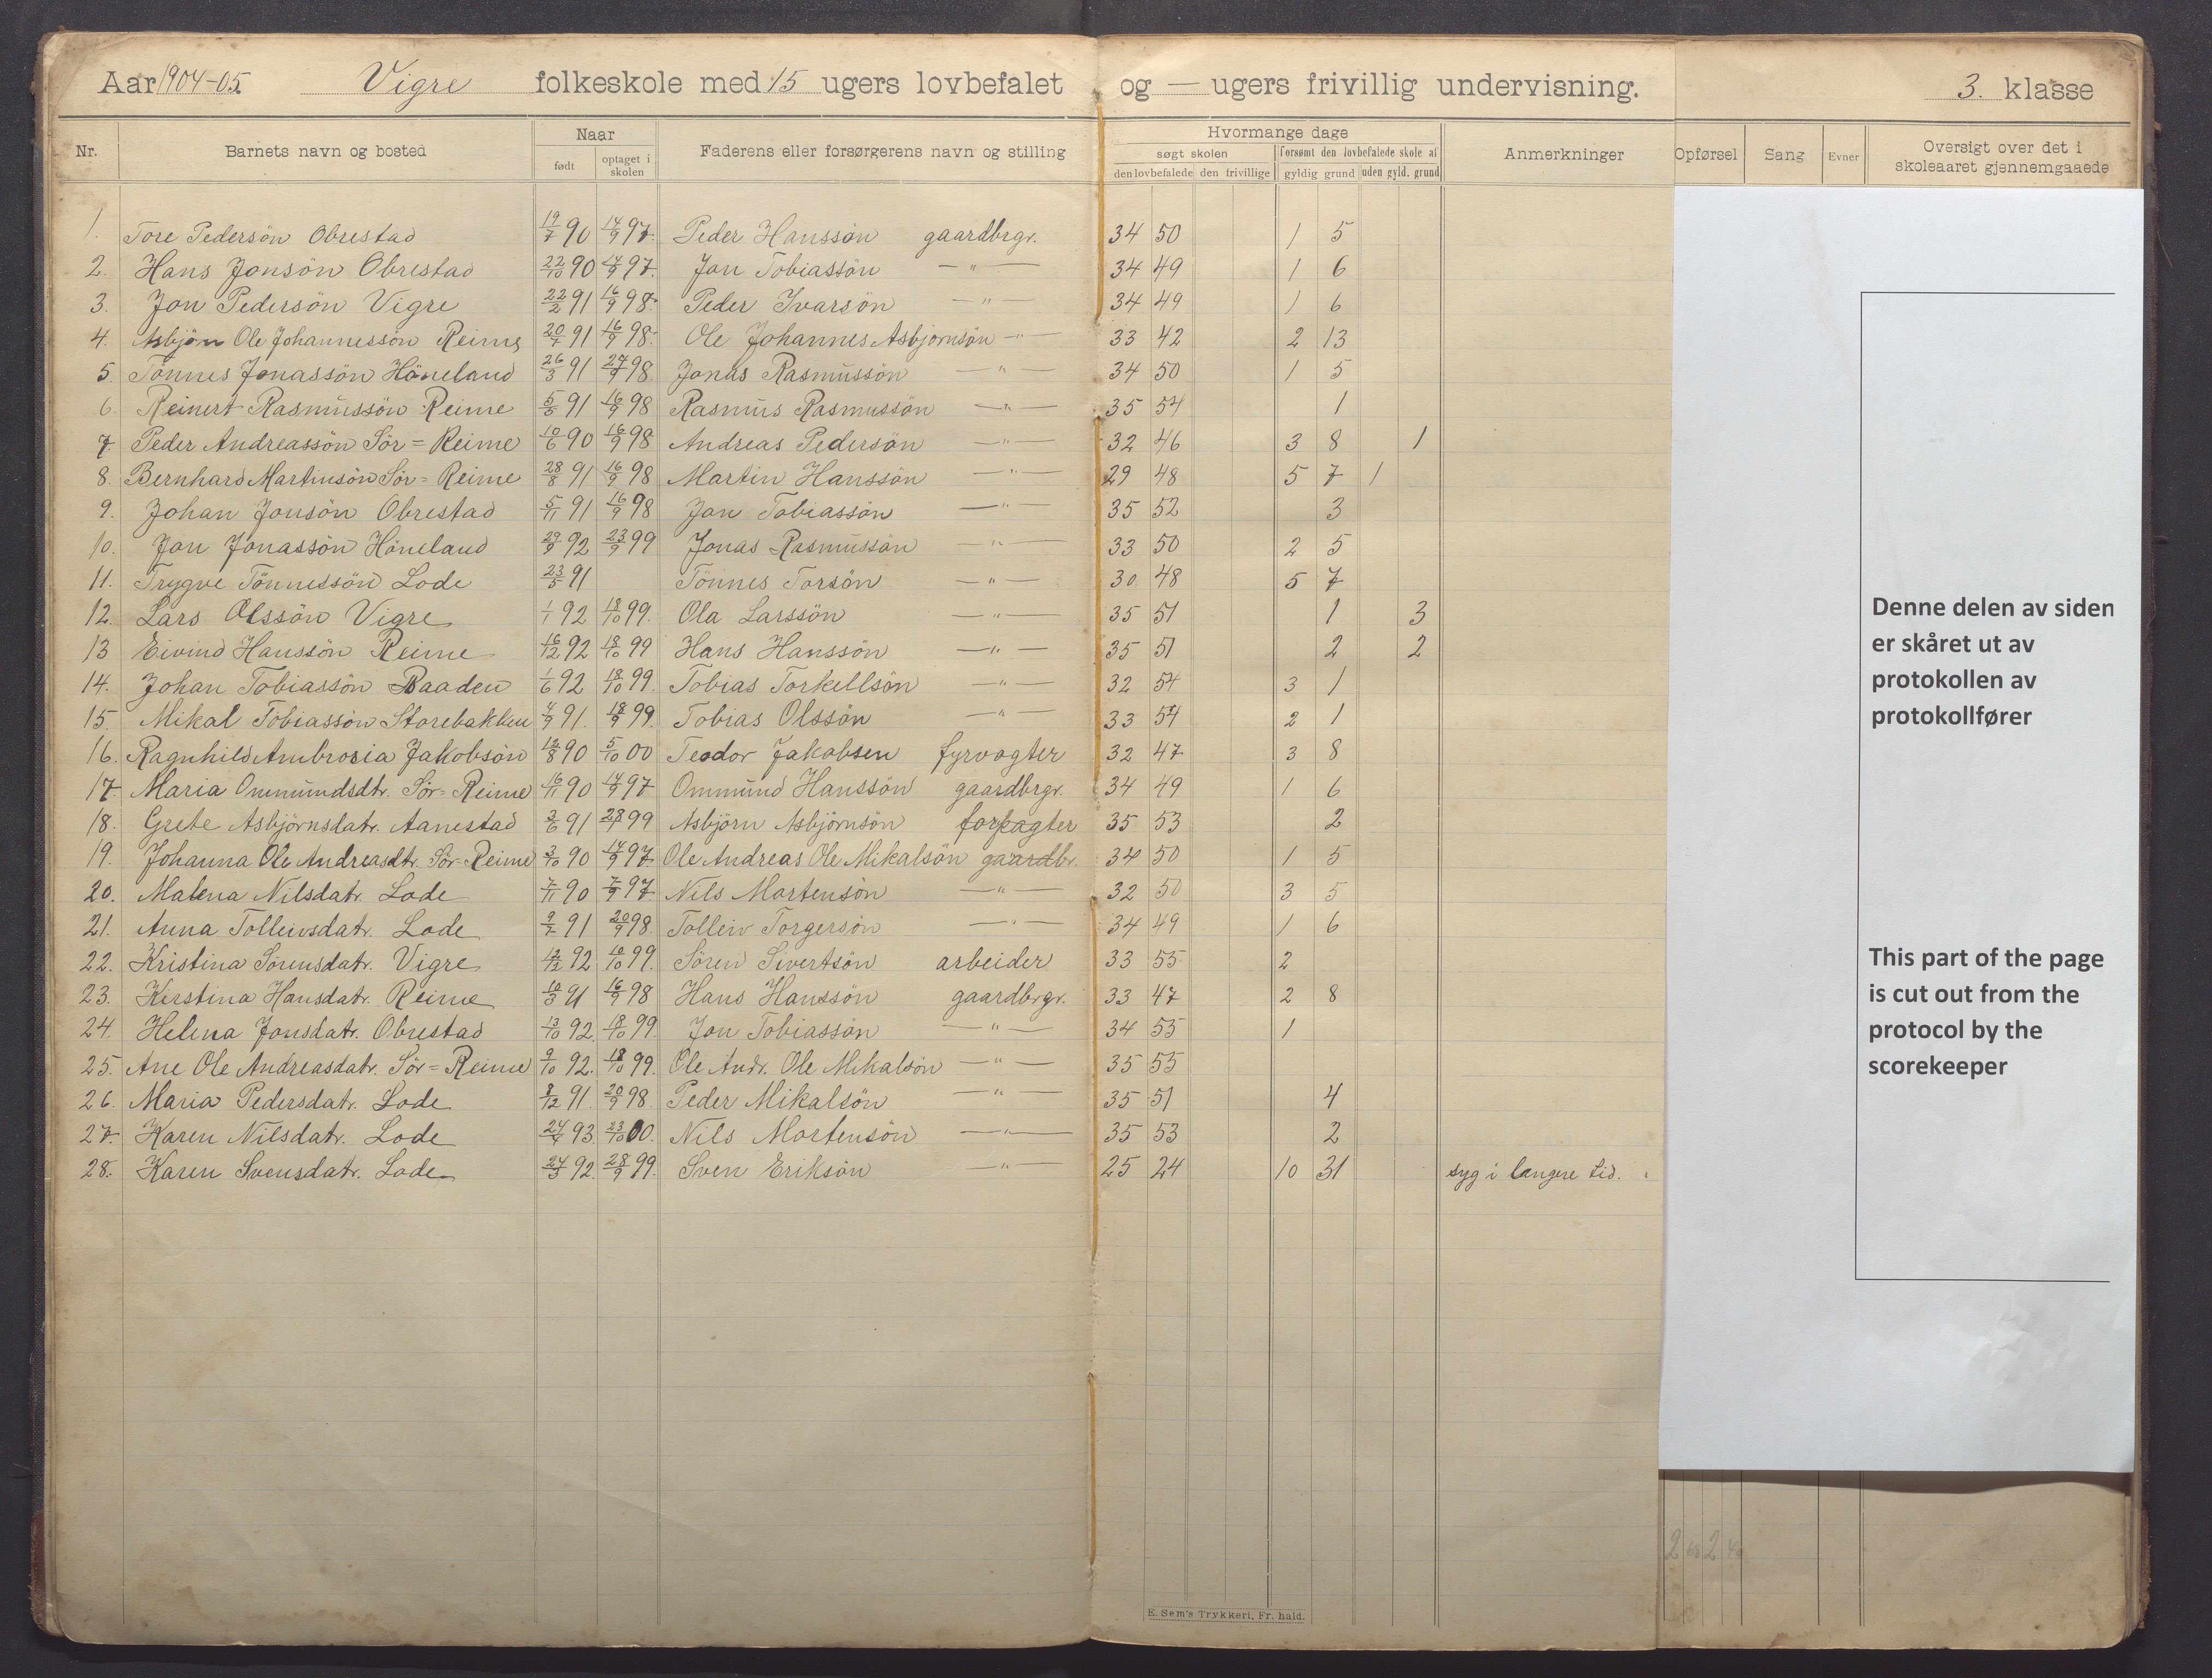 Aar 1904-05. Vigre folkeskole med 15 ugers lovbefalet og — ugers frivillig undervisning. 3. klasse
Nr. Barnets navn og bosted Naar født optaget i skolen Faderens eller forsørgerens navn og stilling Hvormange dage søgt skolen den lovbefalede den frivillige forsømt den lovbefalede skole af gyldig grund uden gyld. grund Anmerkninger Opførsel Sang Evner Oversigt over det i skoleaaret gjennemgaaede
1. Tore Pedersön Obrestad 19/7 90 14/9 97. Peder Hanssön gaardbrgr. 34 50 1 5
2. Hans Jonsön Obrestad 22/10 90 14/9 97. Jon Tobiassön —"— 34 49 1 6
3. Jon Pedersön Vigre 22/2 91 16/9 98. Peder Ivarsön —"— 34 49 1 6
4. Asbjörn Ole Johannessön Reime 20/7 91 16/9 98. Ole Johannes Asbjörnsön —"— 33 42 2 13
5. Tönnes Jonassön Höneland 26/3 91 24/9 98. Jonas Rasmussön —"— 34 50 1 5
6. Reinert Rasmussön Reime 5/5 91 16/9 98 Rasmus Rasmussön —"— 35 54 1
7. Peder Andreassön Sör=Reime 10/6 90 16/9 98 Andreas Pedersön —"— 32 46 3 8 1
8. Bernhard Martinsön Sör=Reime 28/8 91 16/9 98 Martin Hanssön —"— 29 48 5 7 1
9. Johan Jonsön Obrestad 5/11 91 16/9 98 Jon Tobiassön —"— 35 52 3
10. Jon Jonassön Höneland 29/9 92 23/9 99 Jonas Rasmussön —"— 33 50 2 5
11. Trygve Tönnessön Lode 23/5 91 Tönnes Torsön —"— 30 48 5 7
12. Lars Olssön Vigre 1/1 92 18/10 99. Ola Larssön —"— 35 51 1 3
13 Eivind Hanssön Reime 16/12 92 18/10 99 Hans Hanssön —"— 35 51 2 2
14. Johan Tobiassön Baaden 1/6 92 18/10 99. Tobias Torkellsön —"— 32 54 3 1
15. Mikal Tobiassön Storebakken 4/9 91. 18/9 99. Tobias Olssön —"— 33 54 2 1
16. Ragnhild Ambrosia Jakobsön 12/8 90 5/10 00 Teodor Jakobsen fyrvogter 32 47 3 8
17. Maria Ommundsdtr. Sör=Reime 16/11 90 14/9 97 Ommund Hanssön gaardbrgr. 34 49 1 6
18. Grete Asbjörnsdatr. Aanestad 3/6 91 28/9 99 Asbjörn Asbjörnsön forpagter 35 53 2
19. Johanna Ole Andreasdtr. Sör-Reime 3/10 90 14/9 97. Ole Andreas Ole Mikalsön gaardbr. 34 50 1 5
20. Malena Nilsdatr. Lode 7/11 90 7/9 97. Nils Mortensön —"— 32 50 3 5
21. Anna Tolleivsdatr. Lode 9/7 91 20/9 98. Tolleiv Torgersön —"— 34 49 1 6
22. Kristina Sörensdatr. Vigre 12/12 92 10/10 99. Sören Sivertsön arbeider 33 55 2
23. Kirstina Hansdatr. Reime 10/3 91 16/9 98 Hans Hanssön gaardbrgr. 33 47 2 8
24. Helena Jonsdatr. Obrestad 13/10 92. 18/10 99. Jon Tobiassön —"— 34 55 1
25. Ane Ole Andreasdatr. Sör=Reime 9/10 92. 18/10 99. Ole Andr. Ole Mikalsön —"— 35 55
26. Maria Pedersdatr. Lode 8/12 91. 20/9 98. Peder Mikalsön —"— 35 51 4
27. Karen Nilsdatr. Lode 24/4 93. 23/10 00. Nils Mortensön —"— 35 53 2
28. Karen Svensdatr. Lode 24/3 92. 28/9 99. Sven Eriksön —"— 25 24 10 31 syg i længere tid.
Denne delen av siden
er skåret ut av
protokollen av
protokollfører
This part of the page
is cut out from the
protocol by the
scorekeeper
E. Sem's Trykkeri, Fr. hald.